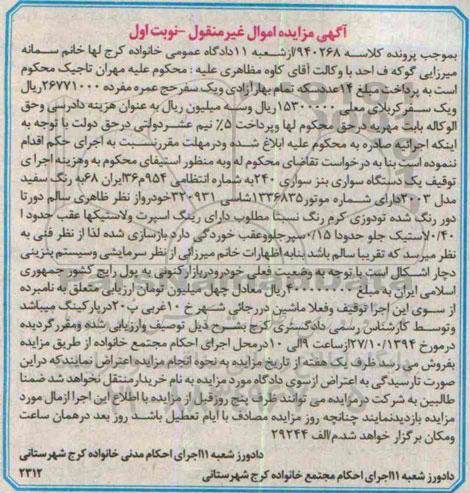 آگهی مزایده اموال غیرمنقول -نوبت اول
بموجب پرونده کلاسه ۹۴۰۲۶۸/ازشعبه ۱۱دادگاه عمومی خانواده کرج لها خانم سمانه
میرزایی گوکه ف احد با وکالت آقای کاوه مظاهری علیه : محکوم علیه مهران تاجیک محکوم
است به پرداخت مبلغ ۱۴عددسکه تمام بهارآزادی ویک سفرحج عمره مفرده ۲۶۷۷۱۰۰۰ریال
ویک سفرکربلای معلی ۱۵۳۰۰۰۰۰ریال وسه میلیون ریال به عنوان هزینه دادرسی وحق
الوکاله بابت مهریه درحق محکوم لها وپرداخت ۵٪ نیم عشردولتی درحق دولت با توجه به
اینکه اجرائیه صادره به محکوم علیه ابلاغ شده ودرمهلت مقررنسبت به اجرای حکم اقدام
ننموده است بنا به درخواست تقاضای محکوم له وبه منظور استیفای محکوم به وهزینه اجرا ی
توقیف یک دستگاه سواری بنز سواری ۲۴۰به شماره انتظامی ۹۵۴م۳۶ایران ۶۸به رنگ سفید
مدل ۲۰۰۳دارای شماره موتور۱۳۳۶۸۳۵شاسی ۳۲۰۹۳۱خودرواز نظر ظاهری سالم دورتا
دور رنگ شده تودوزی کرم رنگ نسبتا مطلوب دارای رینگ اسپرت ولاستیکها عقب حدود ا
۰/۴۰لاستیک جلو حدودا ۰/۱۵سپرجلووعقب خوردگی دارد بازسازی شده لذا از نظر فنی به
نظر میرسد که تقریبا سالم باشد بنابه اظهارات خانم میرزائی از نظر سرمایشی وسیستم بنزینی
دچار اشکال است با توجه به وضعیت فعلی خودرودربازارکنونی به پول رایج کشور جمهوری
اسلامی ایران به مبلغ ۴۰۰۰۰۰۰۰۰ریال معادل چهل میلیون تومان ارزیابی متعلق به نامبرده
از سوی این اجرا توقیف وفعلا ماشین دررجائی شهر خ ۱۰غربی پ۲۰درپارکینگ میباشد
وتوسط کارشناس رسمی دادگستری کرج بشرح ذیل توصیف وارزیابی شده ومقررگردیده
درمورخ ۲۷/۱۰/۱۳۹۴ازساعت ۹الی ۱۰درمحل اجرای احکام مجتمع خانواده از طریق مزایده
بفروش می رسد ظرف یک هفته از تاریخ مزایده به نحوه انجام مزایده اعتراض نمایند که دراین
صورت تارسیدگی به اعتراض ازسوی دادگاه مورد مزایده به نام خریدارمنتقل نخواهد شد ضمنا
طالبین به شرکت درمزایده می توانند ظرف پنج روزقبل از مزایده با اطلاع این اجرا ازمال مورد
مزایده بازدیدنمایند چنانچه روز مزایده مصادف با ایام تعطیل باشد روز بعد درهمان ساعت
ومکان برگزار خواهد شدم/الف ۲۹۲۴۴
دادورز شعبه ۱۱اجرای احکام مدنی خانواده کرج شهرستانی
دادورز شعبه ۱۱اجرای احکام مجتمع خانواده کرج شهرستانی ۲۳۱۲